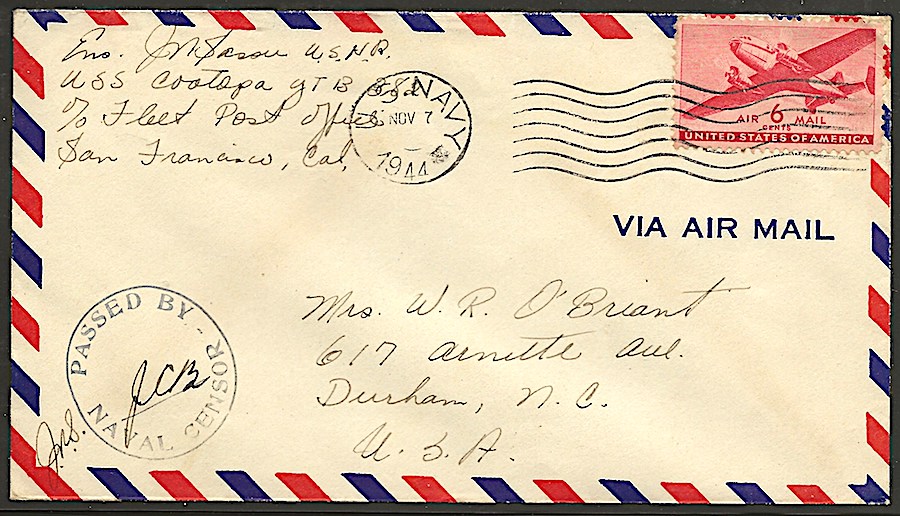 Ens. J M Sasou U.S.N.R.
USS Cotopa YTB 384
c/o Fleet Post Office
San Francisco, Cal,
U.S. NAVY
NOV 7
1944
AIR 6 MAIL
CENTS
UNITED STATES OF AMERICA
VIA AIR MAIL
Mrs. W. R. O'Briant
617 Arnette Ave.
Durham, N. C.
U. S. A.
PASSED BY
NAVAL CENSOR
JCB
J.M.S.